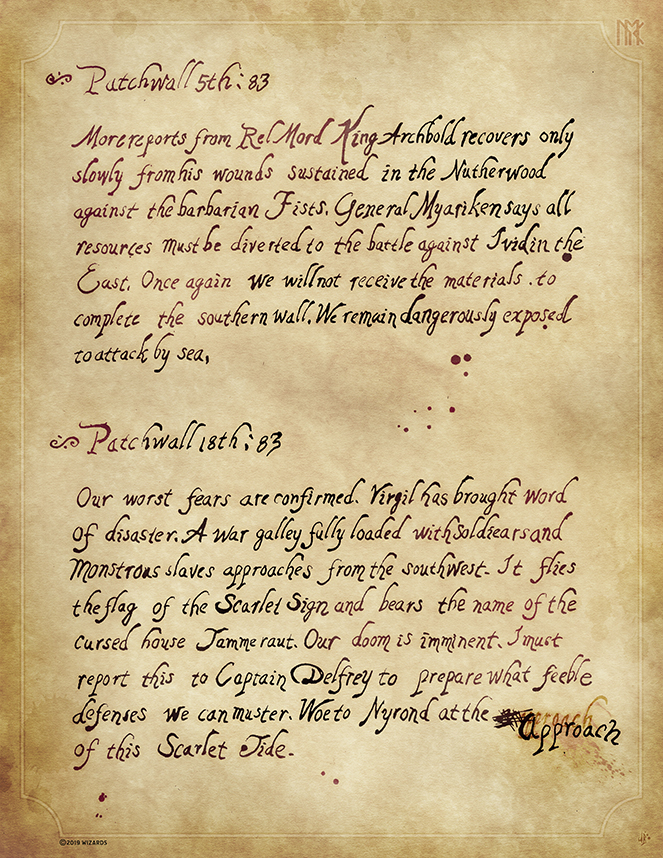 Patchwall 5th: 83
More reports from Rel Mord King Archbold recovers only
slowly from his wounds sustained in the Nutherwood
against the barbarian Fists. General Myariken says all
resources must be diverted to the battle against Ivid in the
East. Once again we will not receive the materials . to
complete the southern wall. We remain dangerously exposed
to attack by sea,
Patchwall 18th: 83
Our worst fears are confirmed. Virgil has brought word
of disaster. A war galley fully loaded with Soldiears and
Monstrous slaves approaches from the southwest. It flies
the flag of the Scarlet Sign and bears the name of the
cursed house Jammeraut. Our doom is imminent. I must
report this to Captain Delfrey to prepare what feeble
defenses we can muster. Woe to Nyrond at the
Approach
of this Scarlet Tide.
©2019 WIZARDS